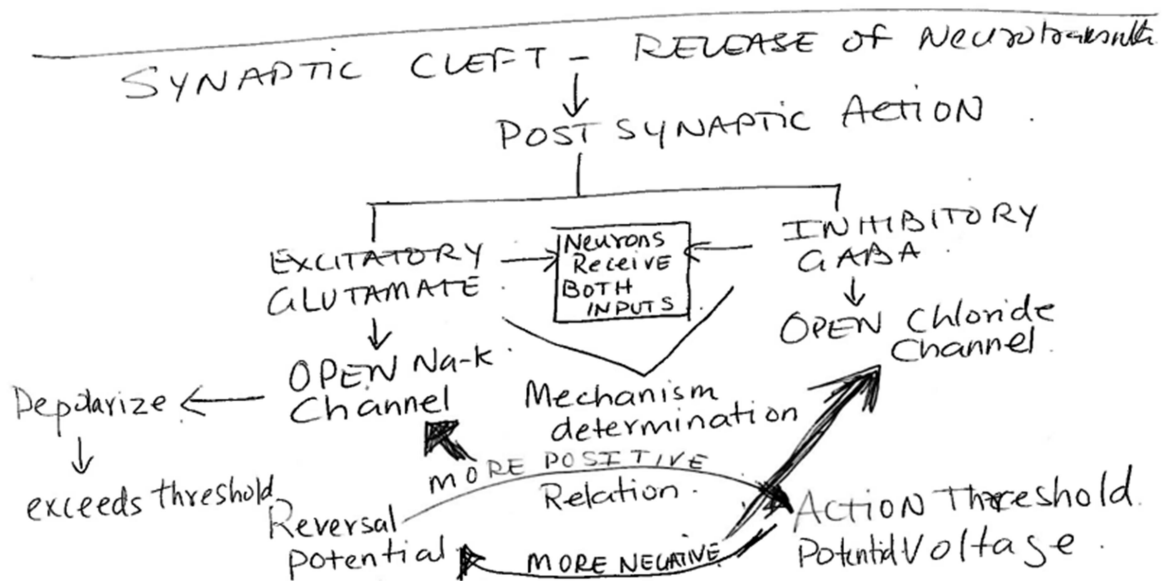 SYNAPTIC CLEFT - RELEASE of Neurotransmitter
POST SYNAPTIC ACTION .
EXCITATORY
GLUTAMATE
Neurons
Receive
BOTH
INPUTS
INHIBITORY
GABA
OPEN Na-K
Channel
OPEN Chloride
Channel
Depolarize
exceeds threshold
Mechanism
determination
MORE POSITIVE
Relation
Reversal
potential
MORE NEGATIVE
ACTION Threshold
Potential Voltage